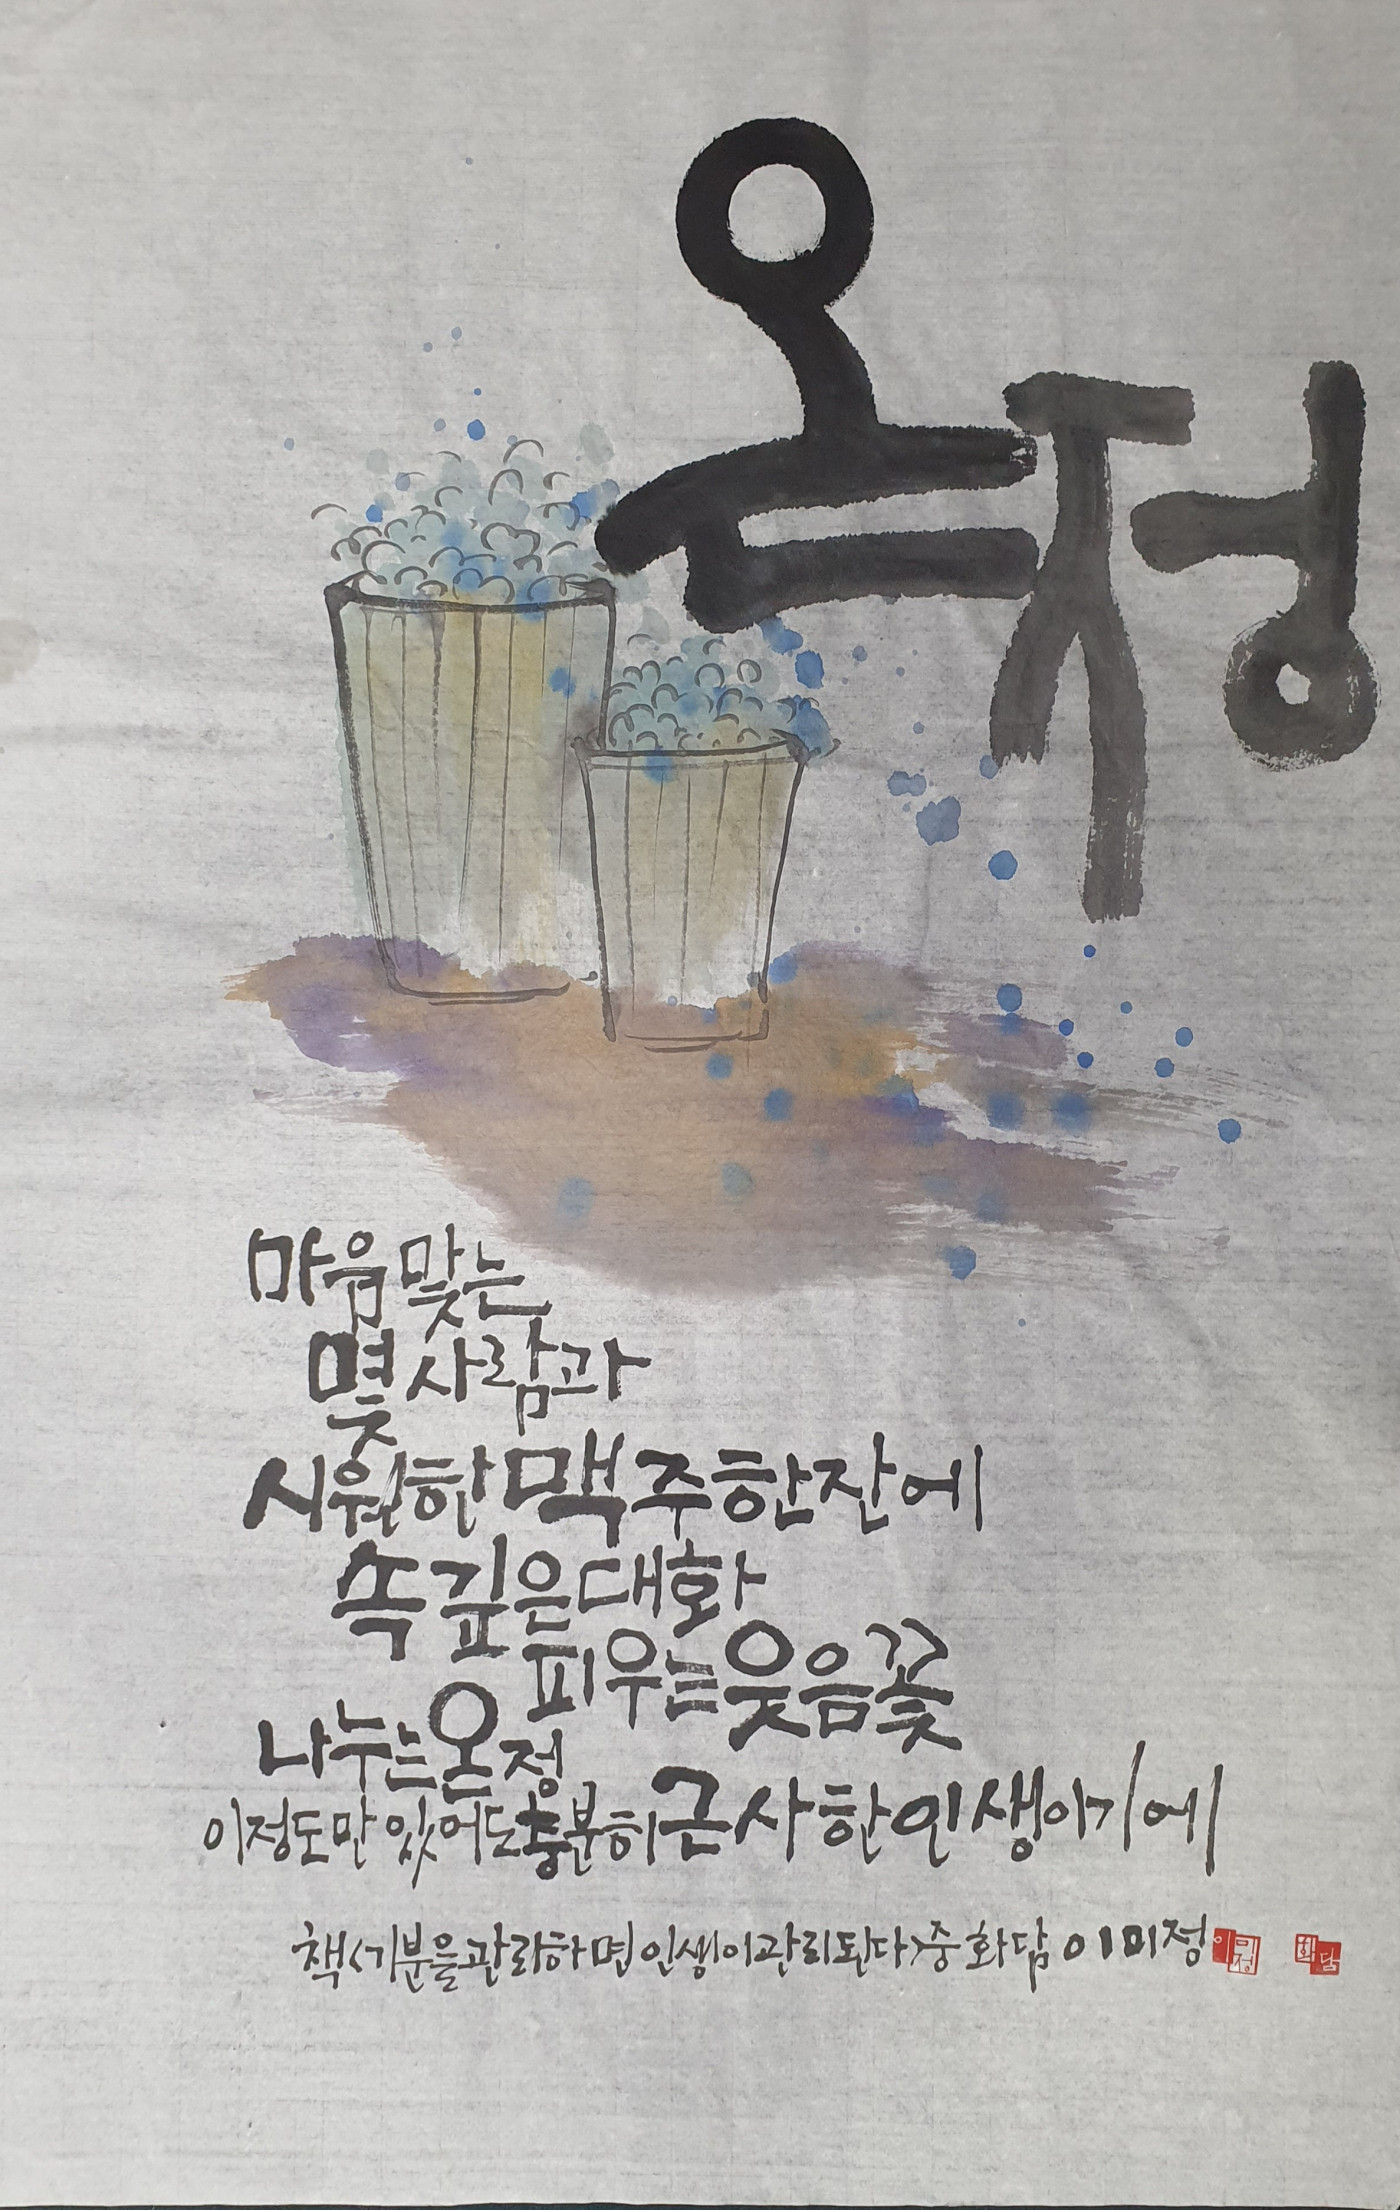 온정
마음 맞는
몇 사람과
시원한 맥주 한잔에
속 깊은 대화
피우는 웃음꽃
나누는 온정
이정도만 있어도 충분히 근사한 인생이기에
책<기분을 관리하면 인생이 관리된다>중 화담 이미정
이미정 화담